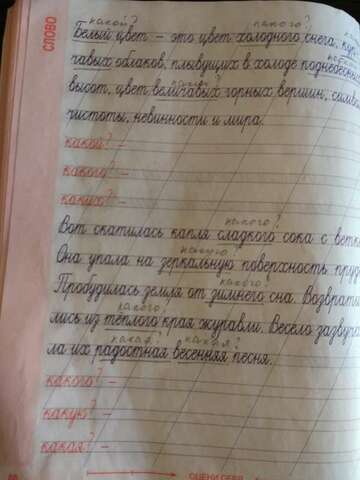 СЛОВО
какой? какого?
Белый цвет – это цвет холодного снега, кур
гавых облаков, плывущих в холоде поднебесных
каких?
высот, цвет величавых горных вершин, симв
чистоты, невинности и мира.
какой? –
какого? –
каких? –
какого?
Вот скатилась капля сладкого сока с ветк
какую?
Она упала на зеркальную поверхность пруд
какого?
Пробудилась земля от зимнего сна. Возврати
какого?
лись из тёплого края журавли. Весело зазвуча
какая? какая?
ла их радостная весенняя песня.
какого? –
какую? –
какая? –
ОЦЕНИ СЕБЯ